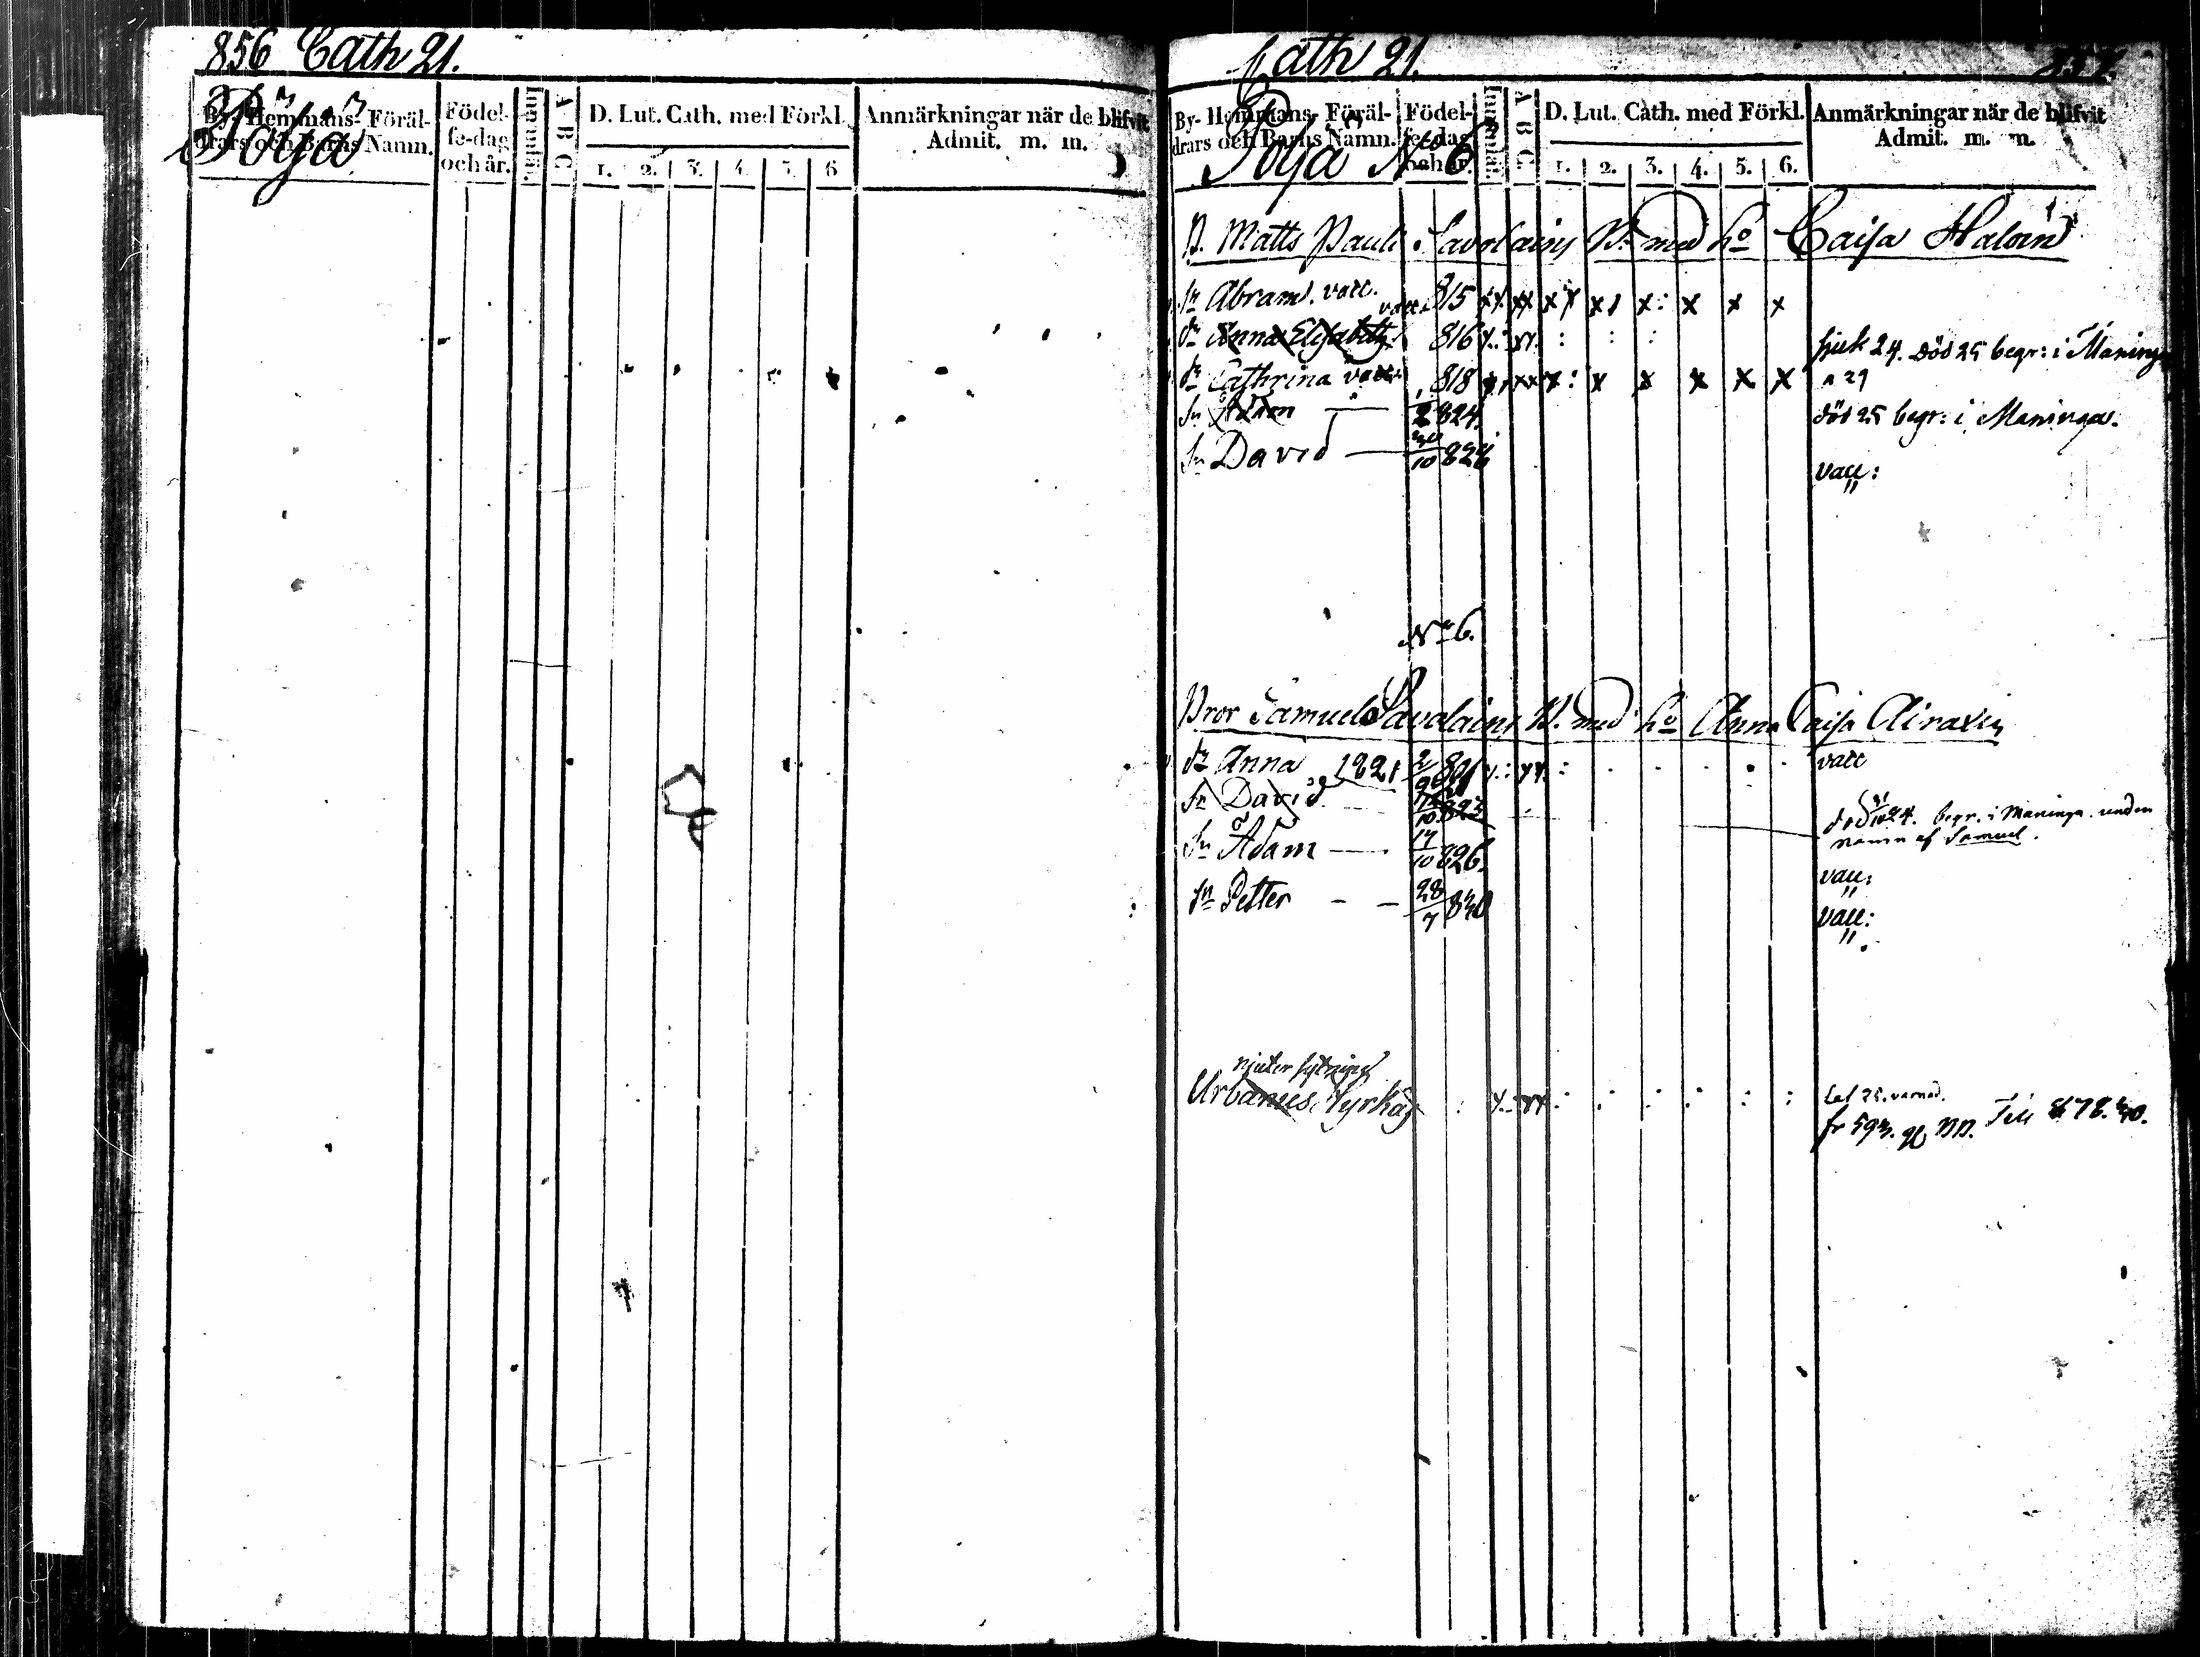 856 Cath 21.
Pöljä
By- Hemmans- Föräl-
drars och Barns Namn.
Födel-
se-dag
och år.
Innanläs.
A B C
D. Lut. Cath. med Förkl.
1. 2. 3. 4. 5. 6
Anmärkningar när de blifvit
Admit. m. m.
Cath 21.
857.
By- Hemmans- Föräl-
drars och Barns Namn.
Födel-
se-dag
och år.
Innanläs.
A B C
D. Lut. Cath. med Förkl.
1. 2. 3. 4. 5. 6.
Anmärkningar när de blifvit
Admit. m. m.
Pöljä No 6
B. Matts Pauli Savolains B. med ho Caisa Haloin
sn Abram. vacc. 815 xx xx x x x x x: x x x
dr Anna Elisabeth vacc. 816 x.: xx. : : : sjuk 24. död 25 begr: i Maninga
dr Cathrina vacc 818 x xx x: x x x x x a 29
sn Adam — 1/2 824. död 25 begr: i Maninga.
sn David — 30/10 828 vacc:
No 6.
Bror Samuel Savolains B. med ho Anna Caisa Airaxin
dr Anna 1821 2/ 801 x.: xx. : vacc
sn David 10 823 död 24. begr. i Maninga under
namn af Samuel.
sn Adam — 17/10 826. vacc:
sn Petter - - 28/7 830 vacc:
njuter sytning
Urbanus Tyrkäs : x.: xx. : : : : : : : Lef 25. varnad.
fr 593. gl BB. Till 678. 30.